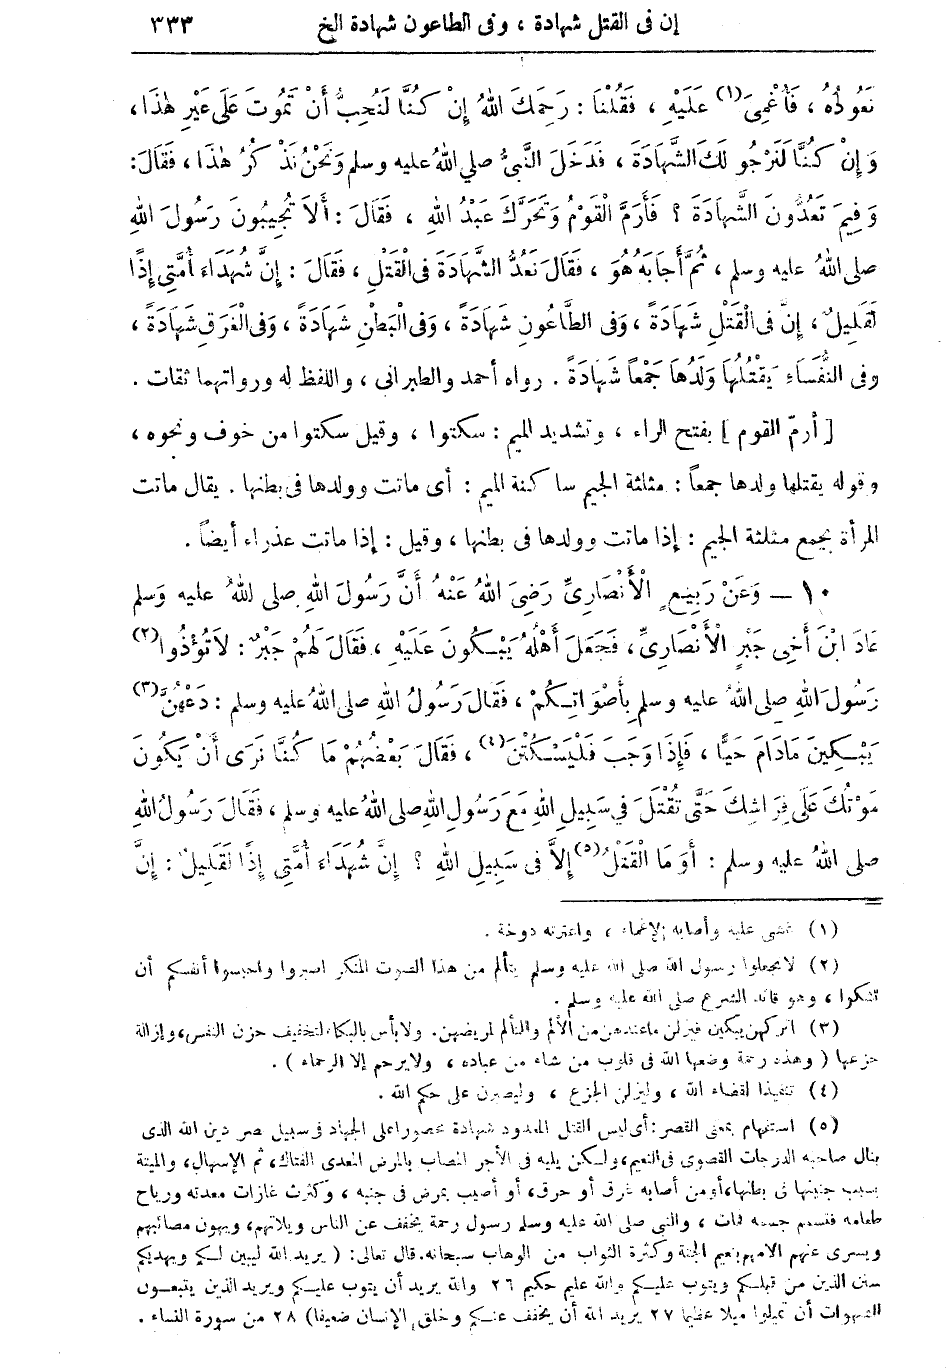 إن فى القتل شهادة ، وفى الطاعون شهادة الخ ٣٣٣
نَعُودُهُ ، فَأُغْمِىَ (١) عَلَيْهِ ، فَقُلْنَا : رَحِمَكَ اللهُ إِنْ كُنَّا لَنُحِبُّ أَنْ تَمُوتَ عَلَى غَيْرِ هٰذَا ،
وَإِنْ كُنَّا لَنَرْجُو لَكَ الشَّهَادَةَ ، فَدَخَلَ النَّبِىُّ صلى اللهُ عليه وسلم وَنَحْنُ نَذْكُرُ هٰذَا ، فَقَالَ:
وَفِيمَ تَعُدُّونَ الشَّهَادَةَ ؟ فَأَرَمَّ الْقَوْمُ وَتَحَرَّكَ عَبْدُ اللهِ ، فَقَالَ : أَلاَ تُجِيبُونَ رَسُولَ اللهِ
صلى اللهُ عليه وسلم ، ثُمَّ أَجَابَهُ هُوَ ، فَقَالَ نَعُدُّ الشَّهَادَةَ فى الْقَتْلِ ، فَقَالَ : إِنَّ شُهَدَاءَ أُمَّتِى إِذًا
لَقَلِيلٌ ، إِنَّ فى الْقَتْلِ شَهَادَةً ، وَفى الطَّاعُونِ شَهَادَةً ، وَفى الْبَطْنِ شَهَادَةً ، وَفى الْغَرَقِ شَهَادَةً ،
وَفى النُّفَسَاءِ يَقْتُلُهَا وَلَدُهَا جَمْعاً شَهَادَةً . رواه أحمد والطبرانى ، واللفظ له ورواتهما ثقات .
[ أرمّ القوم ] بفتح الراء ، وتشديد الميم : سكتوا ، وقيل سكتوا من خوف ونحوه ،
وقوله يقتلها ولدها جمعاً : مثلثة الجيم ساكنة الميم : أى ماتت وولدها فى بطنها . يقال ماتت
المرأة بجمع مثلثة الجيم : إذا ماتت وولدها فى بطنها ، وقيل : إذا ماتت عذراء أيضاً .
١٠ — وَعَنْ رَبِيعٍ الْأَنْصَارِىِّ رَضِىَ اللهُ عَنْهُ أَنَّ رَسُولَ اللهِ صلى اللهُ عليه وَسلم
عَادَ ابْنَ أَخِى جَبْرٍ الْأَنْصَارِىِّ ، فَجَعَلَ أَهْلُهُ يَبْكُونَ عَلَيْهِ ، فَقَالَ لَهُمْ جَبْرٌ : لاَ تُؤْذُوا (٢)
رَسُولَ اللهِ صلى اللهُ عليه وسلم بِأَصْوَاتِكُمْ ، فَقَالَ رَسُولُ اللهِ صلى اللهُ عليه وسلم : دَعْهُنَّ (٣)
يَبْكِينَ مَادَامَ حَيًّا ، فَإِذَا وَجَبَ فَلْيَسْكُتْنَ (٤) ، فَقَالَ بَعْضُهُمْ مَا كُنَّا نَرَى أَنْ يَكُونَ
مَوْتُكَ عَلَى فِرَاشِكَ حَتَّى تُقْتَلَ فِى سَبِيلِ اللهِ مَعَ رَسُولِ اللهِ صلى اللهُ عليه وسلم ، فَقَالَ رَسُولُ اللهِ
صلى اللهُ عليه وسلم : أَوَ مَا الْقَتْلُ (٥) إِلاَّ فى سَبِيلِ اللهِ ؟ إِنَّ شُهَدَاءَ أُمَّتِى إِذًا لَقَلِيلٌ : إِنَّ
(١) غشى عليه وأصابه الإغماء ، واعترته دوخة .
(٢) لا تجعلوا رسول الله صلى الله عليه وسلم يتألم من هذا الصوت المنكر اصبروا واحبسوا أنفسكم أن
تشكوا ، وهو قائد الشرع صلى الله عليه وسلم .
(٣) اتركهن يبكين فيزلن ما عندهن من الألم والتألم لمريضهن . ولا بأس بالبكاء لتخفيف حزن النفس، وإزالة
جزعها ( وهذه رحمة وضعها الله فى قلوب من شاء من عباده ، ولا يرحم إلا الرحماء ) .
(٤) تنفيذا لقضاء الله ، وليزلن الجزع ، وليصبرن على حكم الله .
(٥) استفهام بمعنى القصر : أى ليس القتل المعدود شهادة محصورا على الجهاد فى سبيل نصر دين الله الذى
ينال صاحبه الدرجات القصوى فى النعيم، ولكن يليه فى الأجر المصاب بالمرض المعدى الفتاك، ثم الإسهال، والميتة
بسبب جنينها فى بطنها، أو من أصابه غرق أو حرق، أو أصيب بمرض فى جنبه ، وكثرت غازات معدته ورياح
طعامه فتسمم جسمه فمات ، والنبى صلى الله عليه وسلم رسول رحمة يخفف عن الناس ويلاتهم، ويهون مصائبهم
ويسرى عنهم آلامهم بنعيم الجنة وكثرة الثواب من الوهاب سبحانه. قال تعالى : ( يريد الله ليبين لكم ويهديكم
سنن الذين من قبلكم ويتوب عليكم والله عليم حكيم ٢٦ والله يريد أن يتوب عليكم ويريد الذين يتبعون
الشهوات أن تميلوا ميلا عظيما ٢٧ يريد الله أن يخفف عنكم وخلق الإنسان ضعيفا ) ٢٨ من سورة النساء .